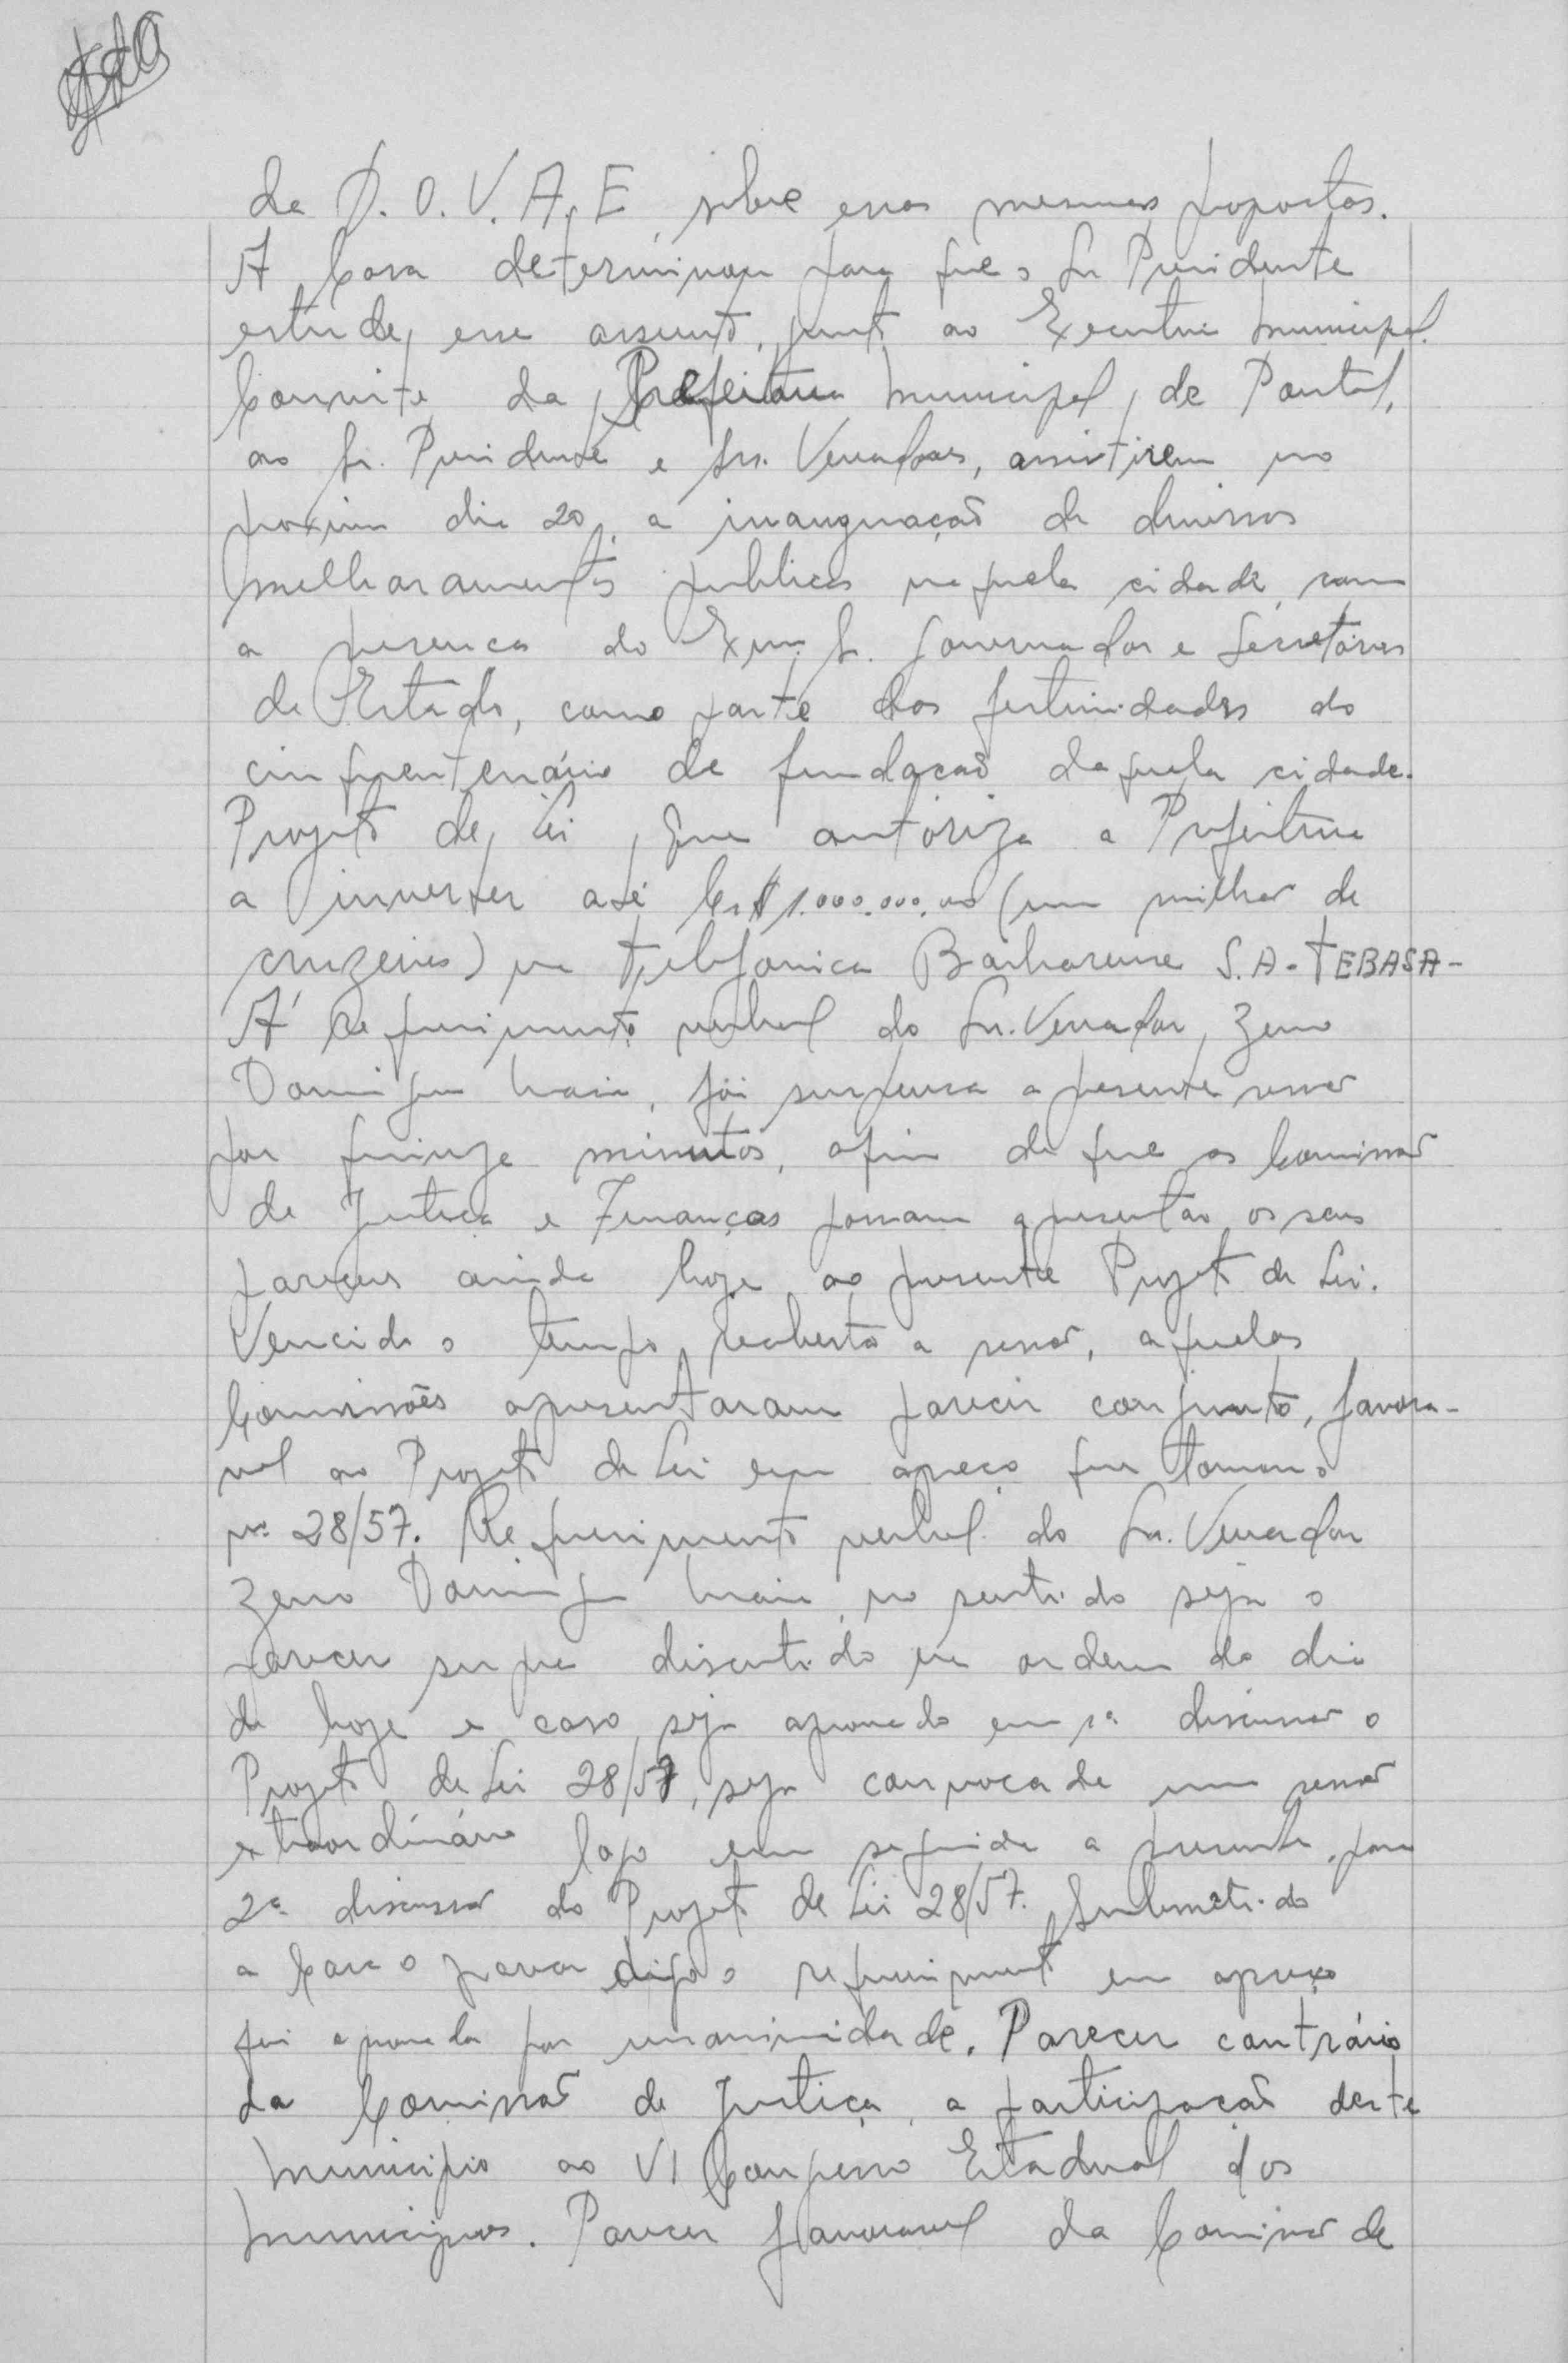 da D.O.V.A.E, sobre essas mesmas propostas.
A Casa determinou para que o Sr Presidente
estude, esse assunto, junto ao Executivo Municipal.
Convite da Prefeitura Municipal, de Pontal,
ao Sr. Presidente e Srs. Vereadores, assistirem no
proximo dia 20, a inauguração de diversos
melhoramentos publicos naquela cidade, com
a presença do Exmo. Sr. Governador e Secretários
de Estado, como parte das festividades do
cinquentenário de fundação daquela cidade.
Projeto de Lei, que autoriza a Prefeitura
a inverter até Cr$ 1.000.000,00 (um milhão de
cruzeiros) na Telefonica Barbarense S.A. - TEBASA -
A' Requerimento verbal do Sr. Vereador, Zeno
Domingues Maia, foi suspensa a presente sessão
por quinze minutos, afim de que as Comissão
de Justiça e Finanças possam apresentar os seus
pareceres ainda hoje ao presente Projeto de Lei.
Vencido o tempo, reaberta a sessão, aquelas
Comissões apresentaram parecer conjunto, favora-
vel ao Projeto de Lei em apreço que tomou o
nº 28/57. Requerimento verbal do Sr. Vereador
Zeno Domingues Maia, no sentido seja o
parecer supra discutido na ordem do dia
de hoje e caso, seja aprovado em 1ª discussão o
Projeto de Lei 28/57, seja convocada uma sessão
extraordinária logo em seguida a presente, para
2ª discussão do Projeto de Lei 28/57. Submetido
a Casa o parecer digo o requerimento em apreço
foi aprovado por unanimidade. Parecer contrário
da Comissão de Justiça, a participação deste
Municipio ao VI Congresso Estadual dos
Municipios. Parecer favoravel da Comissão de